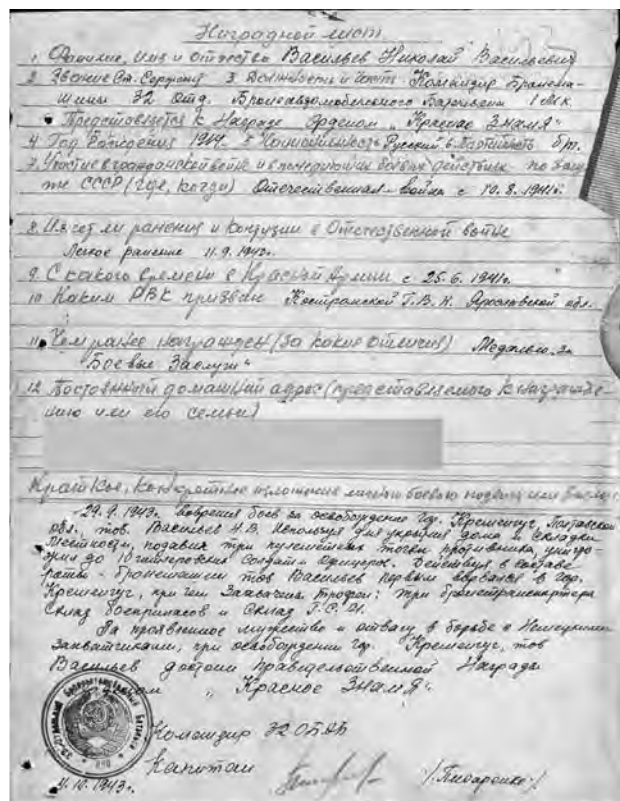 Наградной лист.
1. Фамилия, имя и отчество Васильев Николай Васильевич
2. Звание Ст. Сержант 3. Должность и часть Командир Бронема-
шины 32 Отд. Бронеавтомобильного Батальона 1 М.К.
Представляется к Награде Орденом „Красное Знамя“
4. Год рождения 1914. 5. Национальность Русский. 6. Партийность б/п.
7. Участие в гражданской войне и в последующих боевых действиях по защи-
те СССР (где, когда) Отечественная война с 10.8.1941г.
8. Имеет ли ранения и контузии в Отечественной войне
Легкое ранение 11.9.1942г.
9. С какого времени в Красной Армии с 25.6.1941г.
10. Каким РВК призван Костромской Г.В.К. Ярославской обл.
11. Чем ранее награжден (за какие отличия) Медалью „За
Боевые Заслуги“
12. Постоянный домашний адрес (представляемого к награжде-
нию или его семьи)
Краткое, конкретное изложение личного боевого подвига или заслуг:
29.9.1943г. вовремя боев за освобождение гор. Кременчуг, Полтавской
обл., тов. Васильев Н.В. Используя для укрытия дома и складки
местности, подавил три пулеметных точки противника, уничто-
жил до 10 гитлеровских солдат и офицеров. Действуя в составе
роты - бронемашин тов Васильев первым ворвался в гор.
Кременчуг, при чем захвачены трофеи: три бронетранспортера
склад боеприпасов и склад Г.С.М.
За проявленное мужество и отвагу в борьбе с Немецкими
захватчиками, при освобождении гор. Кременчуг, тов
Васильев достоин правительственной Награды
Орденом „Красное Знамя“.
Командир 32 ОБАБ
Капитан /Писаренко/
4.10.1943г.